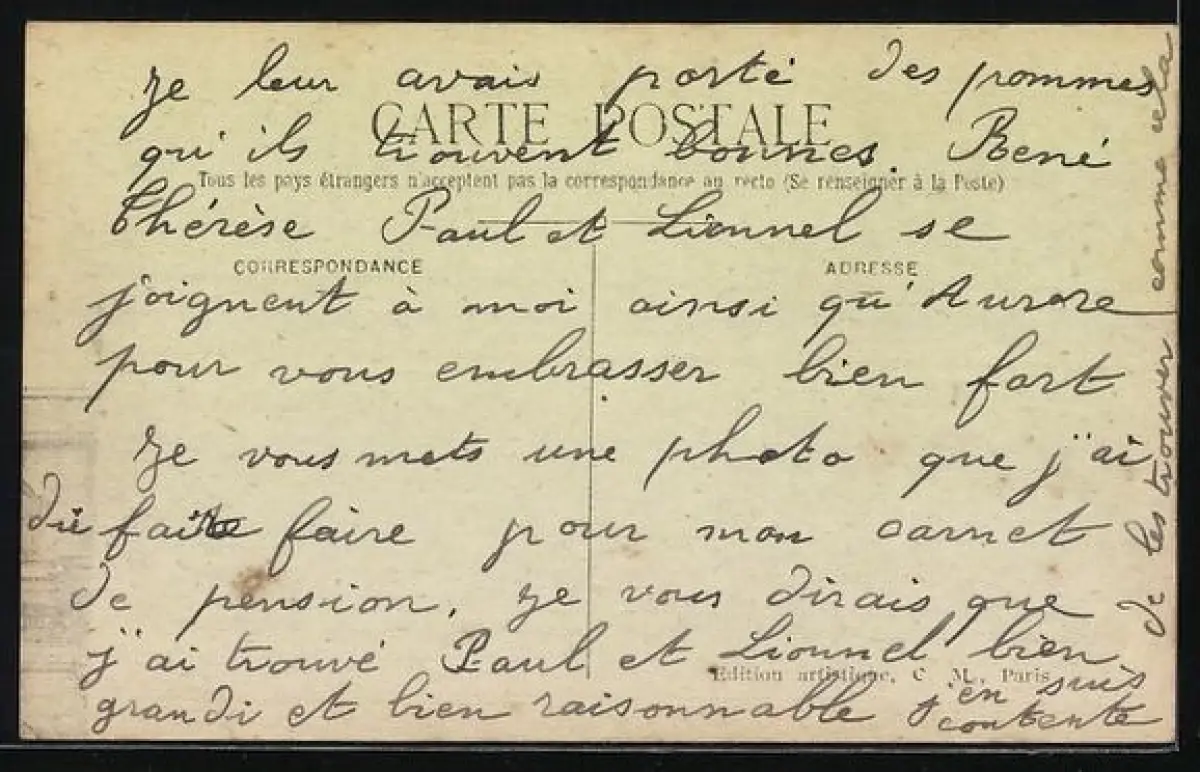 je leur avais porté des pommes
CARTE POSTALE
qu'ils trouvent bonnes. René
Tous les pays étrangers n'acceptent pas la correspondance au recto (Se renseigner à la Poste)
Thérèse Paul et Lionnel se
CORRESPONDANCE
ADRESSE
joignent à moi ainsi qu'Aurore
pour vous embrasser bien fort
je vous mets une photo que j'ai
dû faire pour mon carnet
de pension. je vous dirais que
j'ai trouvé Paul et Lionnel bien
Edition artistique, C M., Paris
grandi et bien raisonnable j'en suis
contente
de les trouver comme cela